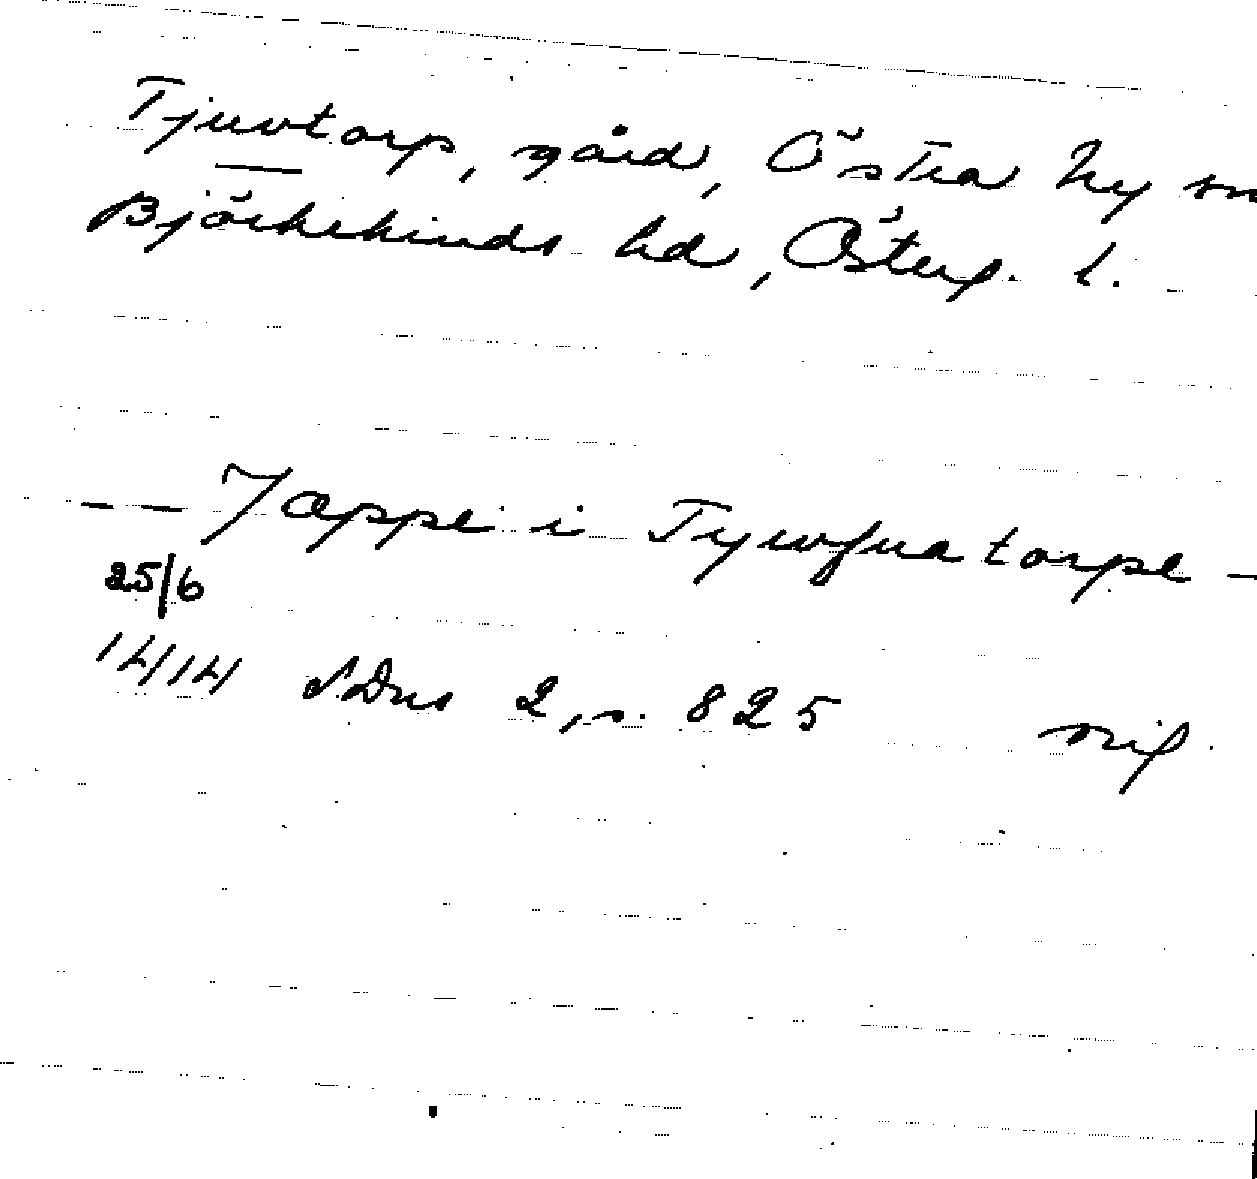 Tjuvtorp, gård, Östra Ny sn
Björkekinds hd, Österg. l.
— — Jæppe i Tywfuatorpe —
25/6
1414 SDns 2, s. 825 nif.